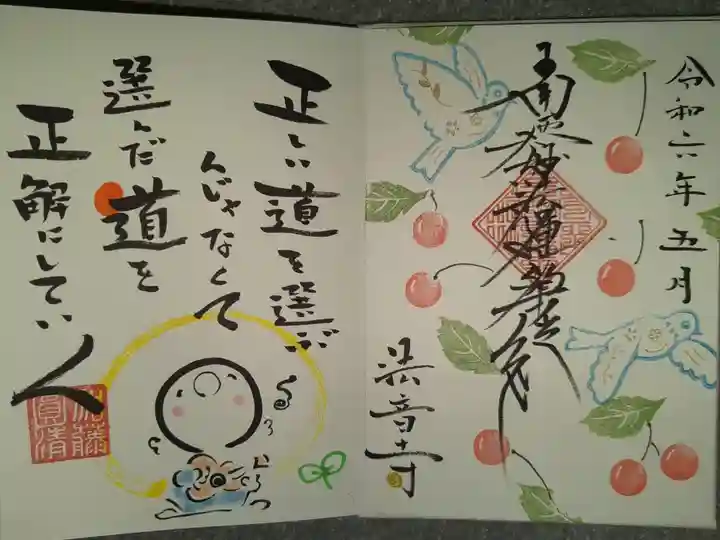 令和六年五月
南無妙法蓮華経
法音寺
正しい道を選ぶ
んじゃなくて
選んだ道を
正解にしていく
圓清